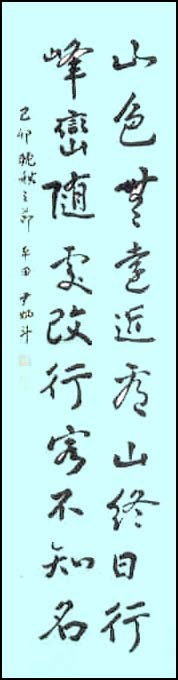 山色無遠近看山終日行
峰巒随處改行客不知名
己卯晚秋之節 田 尹炳斗